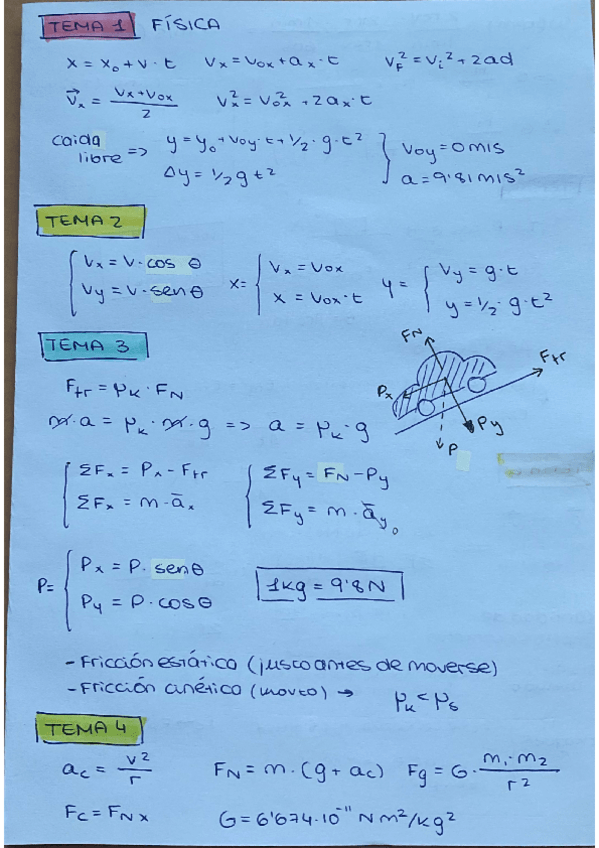 TEMA 1 FÍSICA
x = x₀ + v · t   Vx = Vox + ax · t   V_F² = Vi² + 2ad
V⃗x = (Vx + Vox)/2   Vx² = Vox² + 2ax · t
caida libre => y = y₀ + Voy · t + 1/2 · g · t²   Voy = 0 m/s
Δy = 1/2 g t²   a = 9'81 m/s²
TEMA 2
Vx = V · cos θ   x = { Vx = Vox   y = { Vy = g · t
Vy = V · sen θ   x = Vox · t   y = 1/2 · g · t²
TEMA 3
FN
Ftr
Px
Py
P
Ftr = μk · FN
m · a = μk · m · g => a = μk · g
ΣFx = Px - Ftr   ΣFy = FN - Py
ΣFx = m · āx   ΣFy = m · āy 0
P = { Px = P · sen θ   1kg = 9'8 N
Py = P · cos θ
- Fricción estática (justo antes de moverse)
- Fricción cinética (movto) → μk < μs
TEMA 4
ac = v²/r   FN = m · (g + ac)   Fg = G · (m₁ · m₂)/r²
Fc = FNx   G = 6'674 · 10⁻¹¹ N m²/kg²